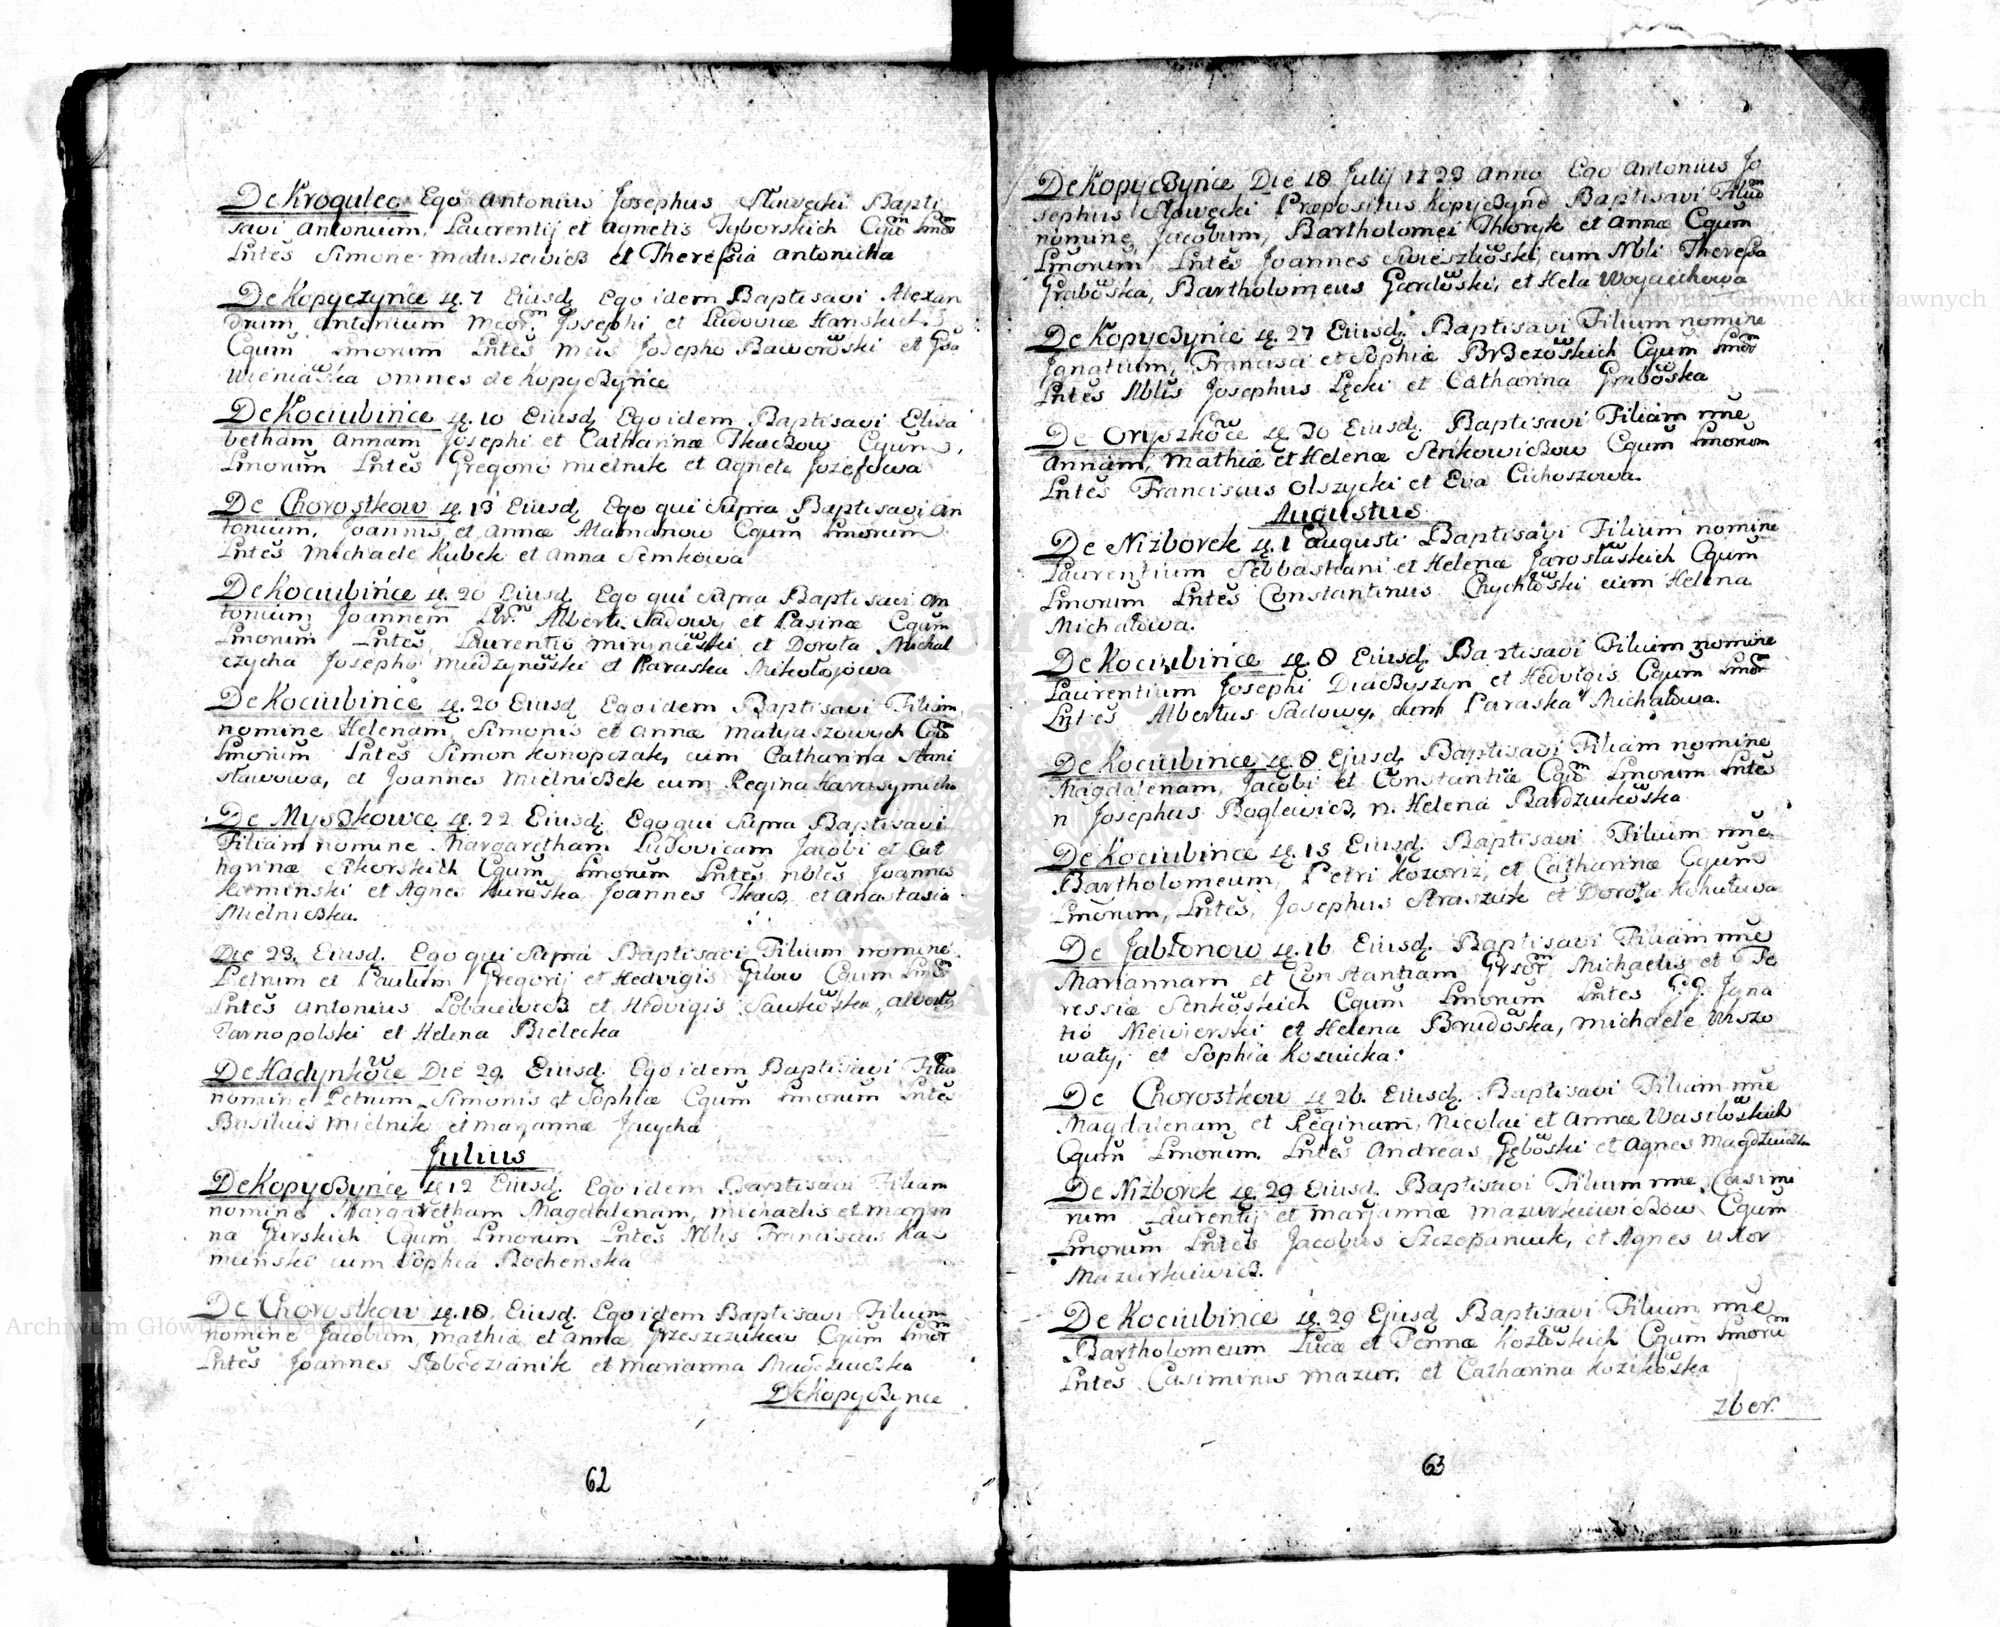 De Krogulec Ego Antonius Josephus Sławęcki Bapti
savi Antonium, Laurentij et Agnetis Tyborskich Cgum Lmor
Lntes Simone Matuszewicz et Theressia Antonicha
De Kopyczynce 7 Eiusd. Ego idem Baptisavi Alexan
drum Antonium Josephi et Ludovicæ Hanskich
Cgum Lmorum Lntes Josepho Baworowski et
omnes de Kopyczynce
De Kociubince 10 Eiusd. Ego idem Baptisavi Elisa
betham Annam Josephi et Catharinæ Tkaczow Cgum
Lmorum Lntes Gregorio Mielnik et Agneta Jozefowa
De Chorostkow 13 Eiusd. Ego qui Supra Baptisavi An
tonium, Joannis et Annæ Atamanow Cgum Lmorum
Lntes Michaele Kubek et Anna Semkowa
De Kociubince 20 Eiusd. Ego qui Supra Baptisavi An
tonium Joannem Alberti Sadowy et Cgum
Lmorum Lntes Laurentio et Dorota Michal
czycha Josepho et Paraska Mikołajowa
De Kociubince 20 Eiusd. Ego idem Baptisavi Filiam
nomine Helenam, Simonis et Annæ Matyaszowych Cgum
Lmorum Lntes Simon Konopczak, cum Catharina Stani
sławowa, et Joannes Mielniczek cum Regina
De Myszkowce 22 Eiusd. Ego qui Supra Baptisavi
Filiam nomine Margaretham Ludovicam Jacobi et Cat
harinæ Sikorskich Cgum Lmorum Lntes nbles Joannes
Kaminski et Agnes Joannes Tkacz, et Anastasia
Mielniczka.
Die 23. Eiusd. Ego qui Supra Baptisavi Filium nomine
Petrum et Paulum Gregorij et Hedvigis Cgum Lmor
Lntes Antonius et Hedvigis
Tarnopolski et Helena Bielecka
De Hadynkowce Die 29. Eiusd. Ego idem Baptisavi Filiu
nomine Petrum Simonis et Sophiæ Cgum Lmorum Lntes
Basilius Mielnik et Maryanna
Julius
De Kopyczynce 12 Eiusd. Ego idem Baptisavi Filiam
nomine Margaretham Magdalenam, Michaelis et Maryan
na Gurskich Cgum Lmorum Lntes Nblis Franciscus Ka
minski cum Sophia Bochenska
De Chorostkow 18. Eiusd. Ego idem Baptisavi Filium
nomine Jacobum, Mathiæ et Annæ Cgum Lmor
Lntes Joannes et Marianna
De Kopyczynce
62
De Kopyczynce Die 18 Julij 1723 Anno Ego Antonius Jo
sephus Sławęcki Præpositus Baptisavi Filiu
nomine Jacobum, Bartholomei Thoryk et Annæ Cgum
Lmorum Lntes Joannes cum Nbli Theressa
Grabowska, Bartholomeus et Hela Woyciechowa
De Kopyczynce 27 Eiusd. Baptisavi Filium nomine
Ignatium, Francisci et Sophiæ Brzezowskich Cgum Lmor
Lntes Nblis Josephus Lęcki et Catharina Grabowska
De Oryszkowce 30 Eiusd. Baptisavi Filiam nne
Annam, Mathiæ et Helenæ Senkowiczow Cgum Lmorum
Lntes Franciscus Olszycki et Eva Cichoszowa.
Augustus
De Nizborek 1 Augusti Baptisavi Filium nomine
Laurentium Sebbastiani et Helenæ Jarosławskich Cgum
Lmorum Lntes Constantinus cum Helena
Michałowa.
De Kociubince 8 Eiusd. Baptisavi Filium nomine
Laurentium Josephi et Hedvigis Cgum Lmor
Lntes Albertus Sadowy, cum Paraska Michałowa.
De Kociubince 8 Ejusd. Baptisavi Filiam nomine
Magdalenam, Jacobi et Constantiæ Cgum Lmorum Lntes
n Josephus n. Helena
De Kociubince 15 Eiusd. Baptisavi Filium nne
Bartholomeum, Petri et Catharinæ Cgum
Lmorum, Lntes, Josephus Straszuk et Dorota
De Jabłonow 16 Eiusd. Baptisavi Filiam nne
Mariannam et Constantiam Michaelis et The
ressiæ Senkowskich Cgum Lmorum Lntes G.G. Igna
tio Niewierski et Helena Brudowska, Michaele Wszo
waty, et Sophia
De Chorostkow 26. Eiusd. Baptisavi Filiam nne
Magdalenam, et Reginam, Nicolai et Annæ Wasilowskich
Cgum Lmorum. Lntes Andreas et Agnes
De Nizborek 29 Eiusd. Baptisavi Filium nne Casimi
rum Laurentij et Maryannæ Mazurkiewiczow Cgum
Lmorum Lntes Jacobus Szczepaniuk, et Agnes uxor
Mazurkiewicz.
De Kociubince 29 Ejusd. Baptisavi Filium nne
Bartholomeum Lucæ et Kozłowskich Cgum Lmorum
Lntes Casimirus Mazur, et Catharina
7ber.
63
Archiwum Główne Akt Dawnych
Archiwum Główne Akt Dawnych